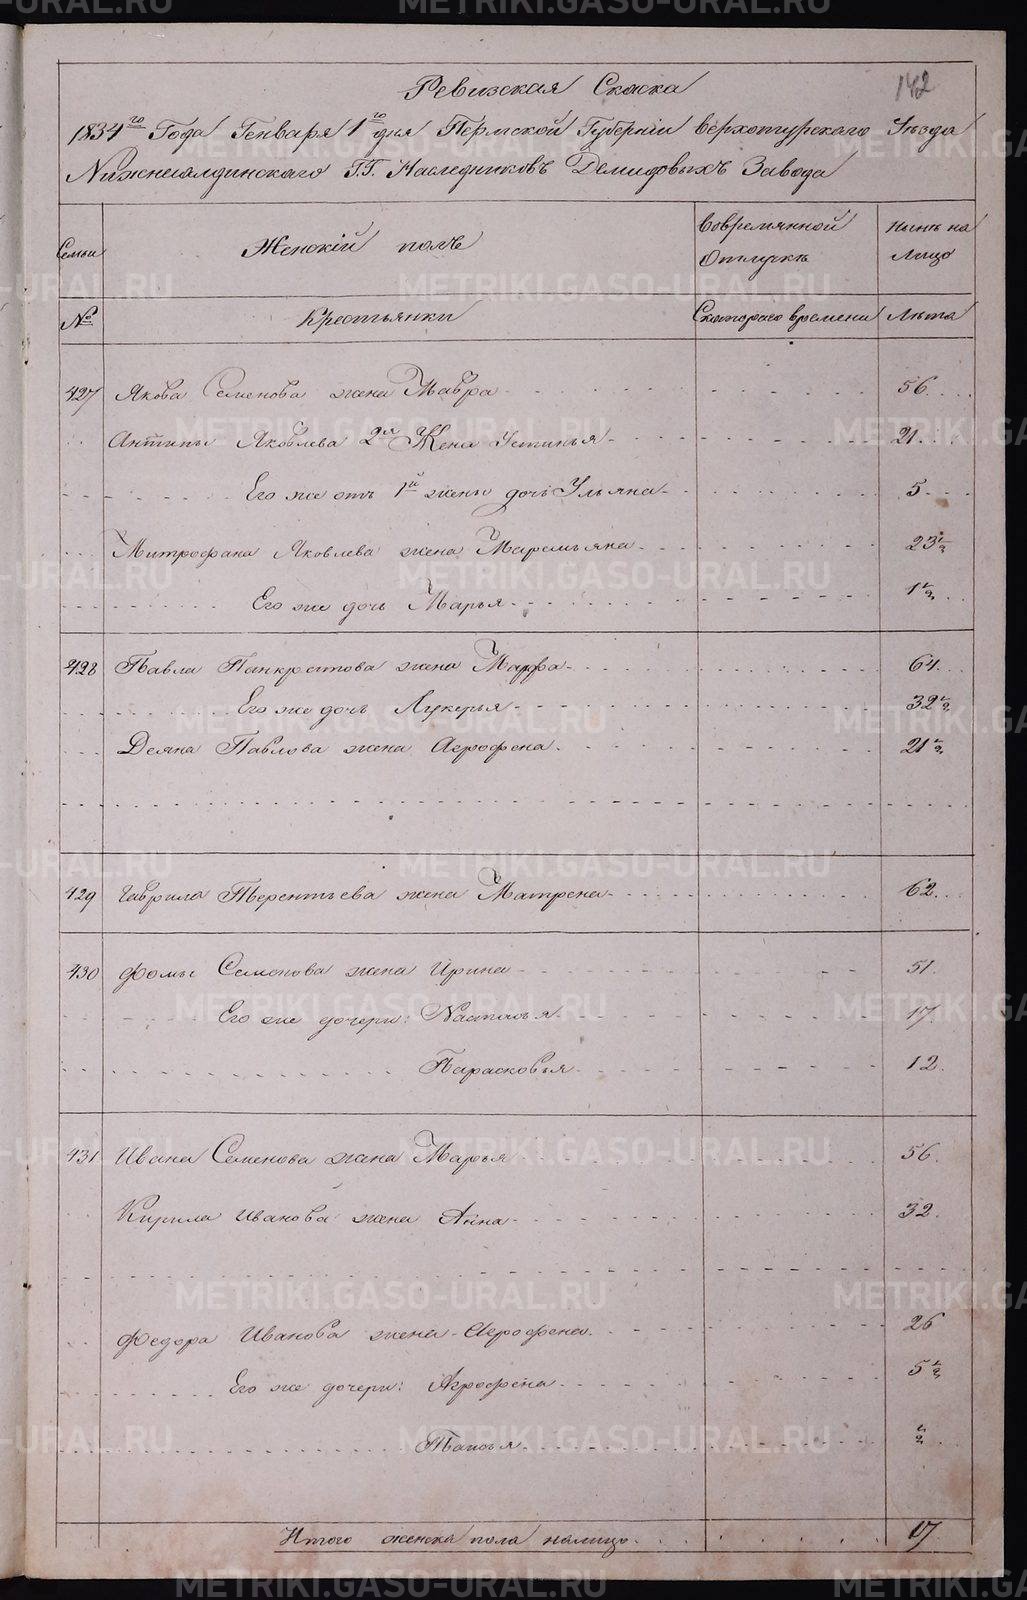 142
Ревизская Сказка
1834го Года Генваря 1го дня Пермской Губернiи верхотурскаго Уѣзда
Нижнесалдинскаго Г.Г. Наследниковъ Демидовыхъ Завода
Семьи Женскiй полъ Вовремянной Отлучкѣ Нынѣ на Лицо
№ Крестьянки Скотораго времени Лѣта
427 Якова Семенова жена Мавра 56
Антипы Яковлева 2я Жена Устинья 21
Его же отъ 1й жены дочь Ульяна 5
Митрофана Яковлева жена Маремьяна 23 1/2
Его же дочь Марья 1 1/2
428 Павла Панкратова жена Марфа 64
Его же дочь Лукерья 32 1/2
Павлова жена Агрофена 21 1/2
429 Гаврила Терентьева жена Матрена 62
430 Фомы Семенова жена Ирина 51
Его же дочери: Настасья 17
Парасковья 12
431 Ивана Семенова жена Марья 56
Кирила Иванова жена Анна 32
Федора Иванова жена Агрофена 26
Его же дочери: Агрофена 5 1/2
Таисья 1/2
Итого женска пола налицо 17
METRIKI.GASO-URAL.RU